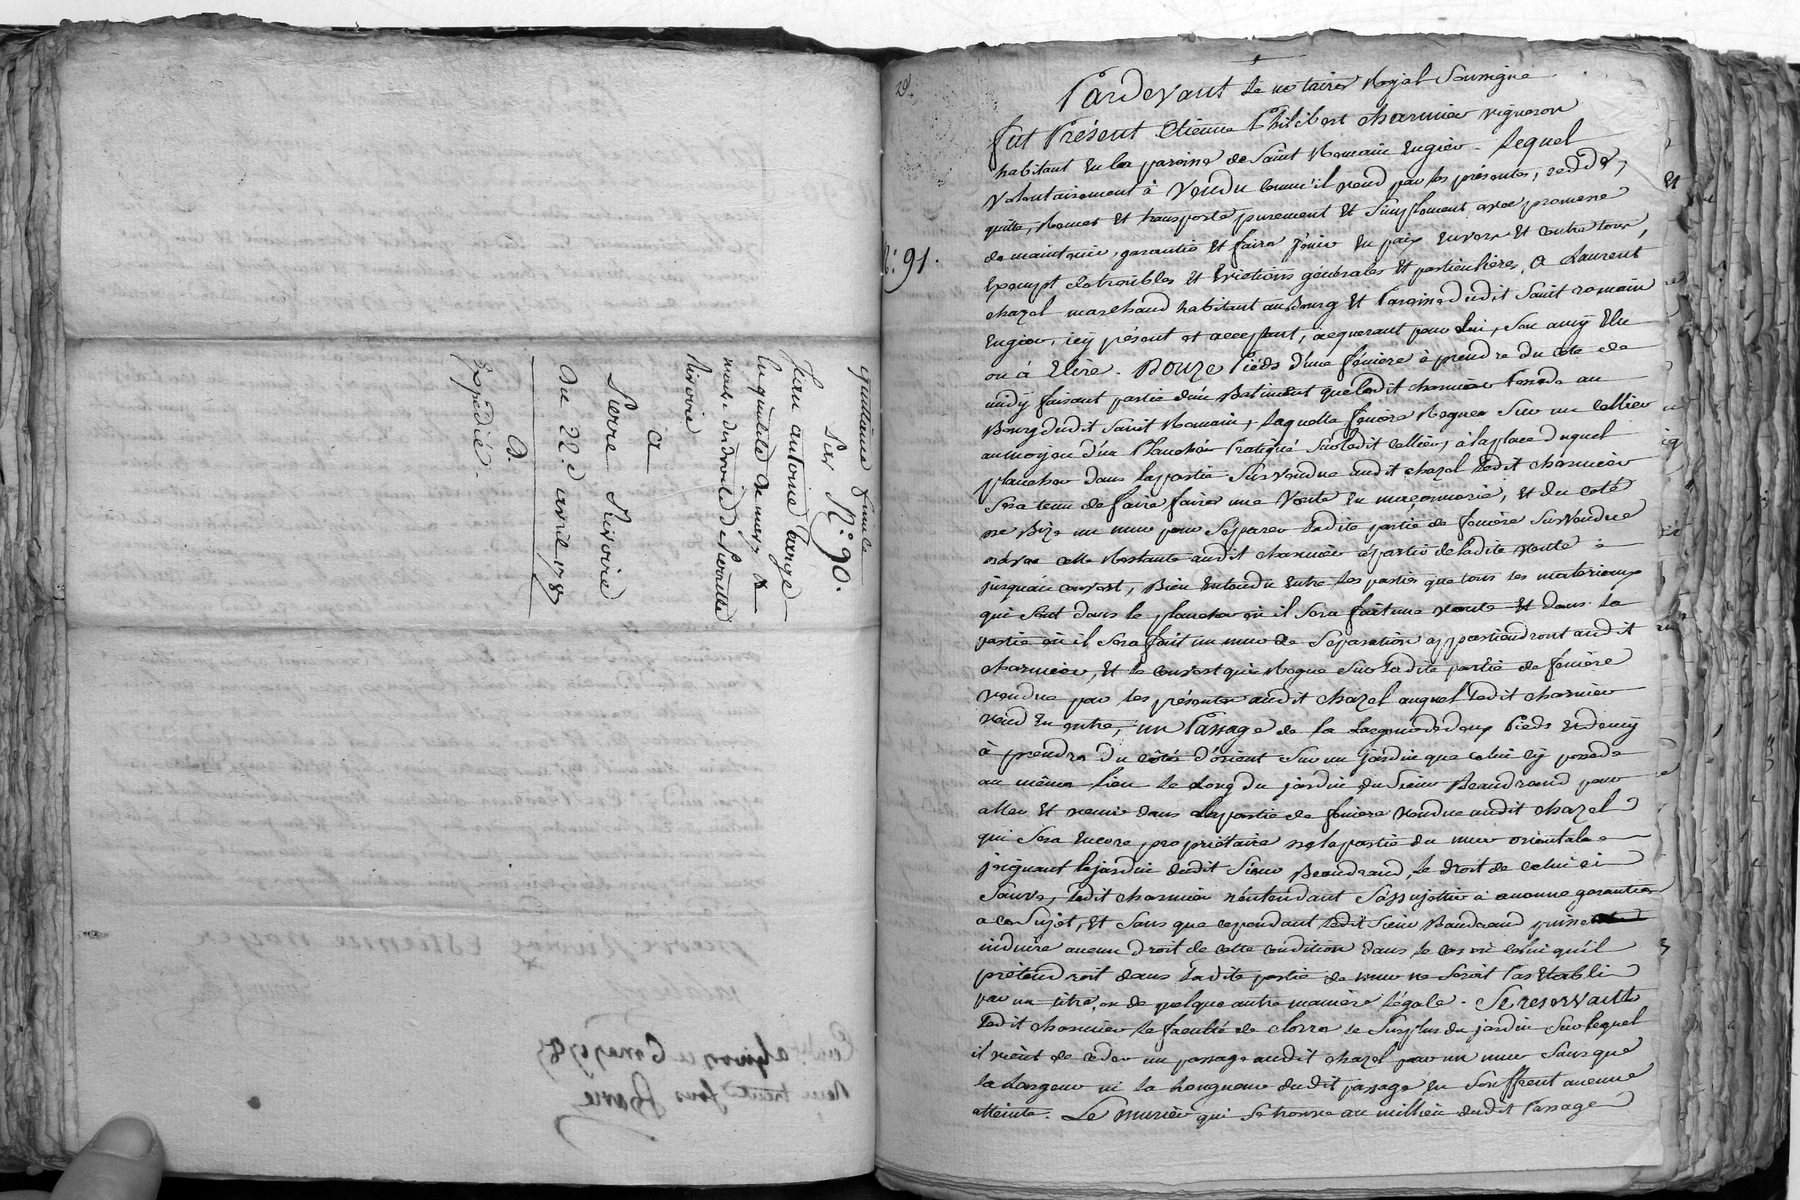 quittance finale
Sur N.° 90.
Jean antoine farge
en qualité de mary &
maitre des droits de Pierrette
Rivoire
a
Pierre Rivoire
Du 22 avril 178
Expédié.
29.
N.° 91.
Pardevant Le notaire Royal Soussigné
fut Présent Etienne Philibert charmier vigneron
habitant en la paroisse de Saint Romain Engier - Lequel
volontairement à vendu comme il vend par les présentes, cedde,
quitte, Remet et transporte purement et Simplement avec promesse
de maintenir, garantir et faire jouir en paix envers et contre tous,
Exempt de troubles et Evictions générales et particulières, a Laurent
chazel marchand habitant au Bourg et Paroisse dudit Saint romain
Engier, icy présent et acceptant, acquerant pour lui, Son amy Elu
ou à Elire. Douze Pieds d'une féniere à prendre du coté de
midy faisant partie d'un Batiment que ledit charmier Possede au
Bourg dudit Saint Romain, Laquelle féniere Regne Sur un cellier
au moyen d'un Plancher Pratiqué Sur ledit cellier, à la place duquel
plancher dans la partie Sus vendue audit chazel Ledit charmier
Sera tenu de faire faire une voute en maçonnerie, et du coté
de Bize un mur pour Séparer Ladite partie de féniere Sus vendue
celle Restante audit charmier à partir de ladite voute
jusqu'au couvert, Bien entendu entre Les parties que tous Les materiaux
qui Sont dans le plancher où il Sera fait une voute et dans La
partie où il Sera fait un mur de Séparation appartiendront audit
charmier, et le couvert qui Regne Sur Ladite partie de féniere
vendue par Les présentes audit chazel auquel Ledit charmier
vend en outre, un Passage de la Largeur de deux Pieds et demy
à prendre du côté d'orient Sur un jardin que celui cy possede
au même Lieu Le Long du jardin du Sieur Beaudrand pour
aller et venir dans la partie de féniere vendue audit chazel
qui Sera Encore propriétaire de la partie du mur orientale
joignant le jardin dudit Sieur Beaudrand, Le droit de celui ci
Sauve, Ledit charmier n'entendant S'assujettir à aucune garantie
a ce Sujet, et Sans que cependant Ledit Sieur Baudrand puisse
induire aucun droit de cette condition dans Le cas où celui qu'il
prétendroit dans Ladite partie de mur ne Seroit Pas Etabli
par un titre, ou de quelque autre maniére Légale. Se reservant
Ledit charmier la faculté de clorre Le Surplus du jardin Sur lequel
il vient de ceder un passage audit chazel par un mur Sans que
La Largeur ni La Longueur dudit passage en Souffrent aucune
atteinte. Le murier qui Se trouve au millieu dudit Passage